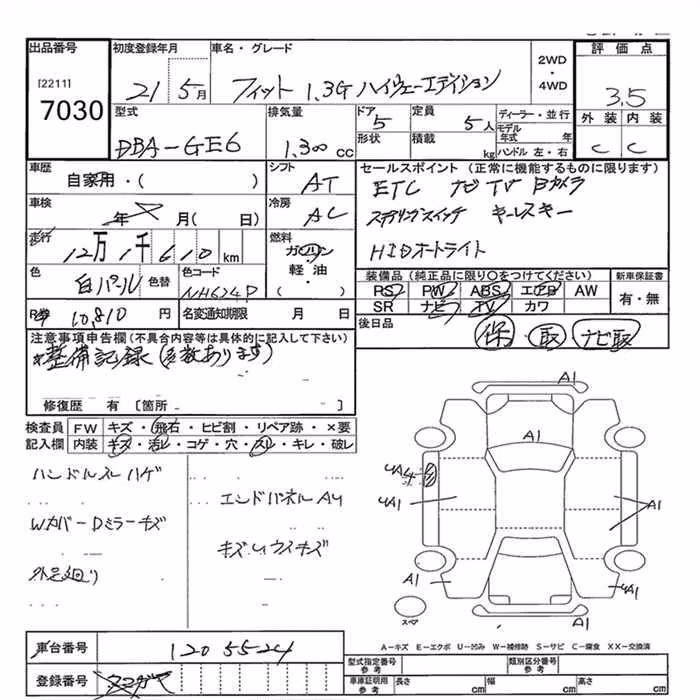 出品番号
[2211]
7030
初度登録年月
21 5月
車名・グレード
フィット 1.3G ハイウェーエディション
2WD
・
4WD
評価点
3.5
外装 内装
C C
型式
DBA-GE6
排気量
1,300 cc
ドア
5
形状
定員
5人
積載
kg
ディーラー・並行
モデル年式 年
ハンドル 左・右
車歴
自家用・( )
車検
年 月( 日)
シフト
AT
冷房
AC
走行
12万1千610 km
燃料
ガソリン
軽油
( )
色
白パール
色替
色コード
NH624P
R券 10,810 円
名変通知期限 月 日
セールスポイント(正常に機能するものに限ります)
ETC ナビ TV Bカメラ
ステアリングスイッチ キーレスキー
HIDオートライト
装備品(純正品に限り○をつけてください)
PS PW ABS エアB AW
SR ナビ TV カワ
新車保証書
有・無
後日品
保 取 ナビ取
注意事項申告欄(不具合内容等は具体的に記入して下さい)
*整備記録(多数あります)
修復歴 有 [箇所 ]
検査員記入欄
FW キズ・飛石・ヒビ割・リペア跡・×要
内装 キズ・汚レ・コゲ・穴・スレ・キレ・破レ
ハンドルスレハゲ
エンドパネルAU
WカバーDミラーキズ
キズ、Uウスキズ
外足廻り
A1
A1
UA1
A1
A1
UA1
A1
スペア
A-キズ E-エクボ U-凹み W-補修跡 S-サビ C-腐食 XX-交換済
車台番号
1205524
登録番号
型式指定番号
参考
類別区分番号
参考
車庫証明用
参考
長さ cm
幅 cm
高さ cm